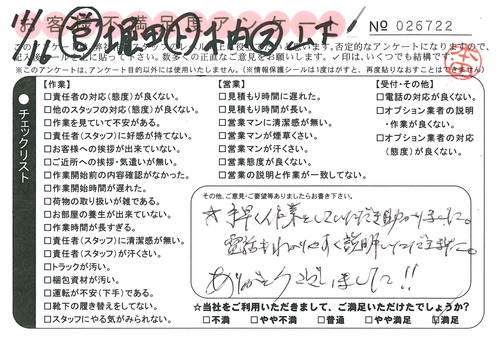 お客様不満足度アンケート
No 026722
入後シールを上に貼って下さい。数多くの正直なご意見をお願いします。✓印は、いくつでも結構です。
※このアンケートは、アンケート目的以外には使用いたしません。(※情報保護シールは1度はがすと、再度貼りなおすことはできません)
チェックリスト
【作業】
□責任者の対応(態度)が良くない。
□他のスタッフの対応(態度)が良くない。
□作業を見ていて不安がある。
□責任者(スタッフ)に好感が持てない。
□お客様への挨拶が出来ていない。
□ご近所への挨拶・気遣いが無い。
□作業開始前の内容確認がなかった。
□作業開始時間が遅れた。
□荷物の取り扱いが雑である。
□お部屋の養生が出来ていない。
□作業時間が長すぎる。
□責任者(スタッフ)に清潔感が無い。
□責任者(スタッフ)が汗くさい。
□トラックが汚い。
□梱包資材が汚い。
□運転が不安(下手)である。
□靴下の履き替えをしてない。
□スタッフにやる気がみられない。
【営業】
□見積もり時間に遅れた。
□見積もり時間が長い。
□営業マンに清潔感が無い。
□営業マンが煙草くさい。
□営業マンが汗くさい。
□営業態度が良くない。
□営業の説明と作業が一致してない。
【受付・その他】
□電話の対応が良くない。
□オプション業者の説明
・作業が良くない。
□オプション業者の対応
(態度)が良くない。
その他、ご意見・ご要望等ありましたらお書き下さい。
★手早く作業をしていただき助かりました。
電話もわかりやすく説明していただきました。
ありがとうございました!!
☆当社をご利用いただきまして、ご満足いただけたでしょうか?
□不満 □やや不満 □普通 □やや満足 ☑満足